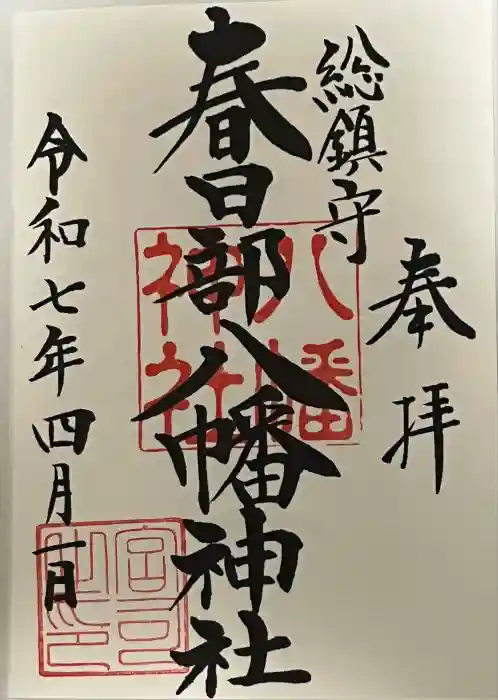 奉拝
総鎮守
春日部八幡神社
令和七年四月一日
八幡
神社
宮司
之印